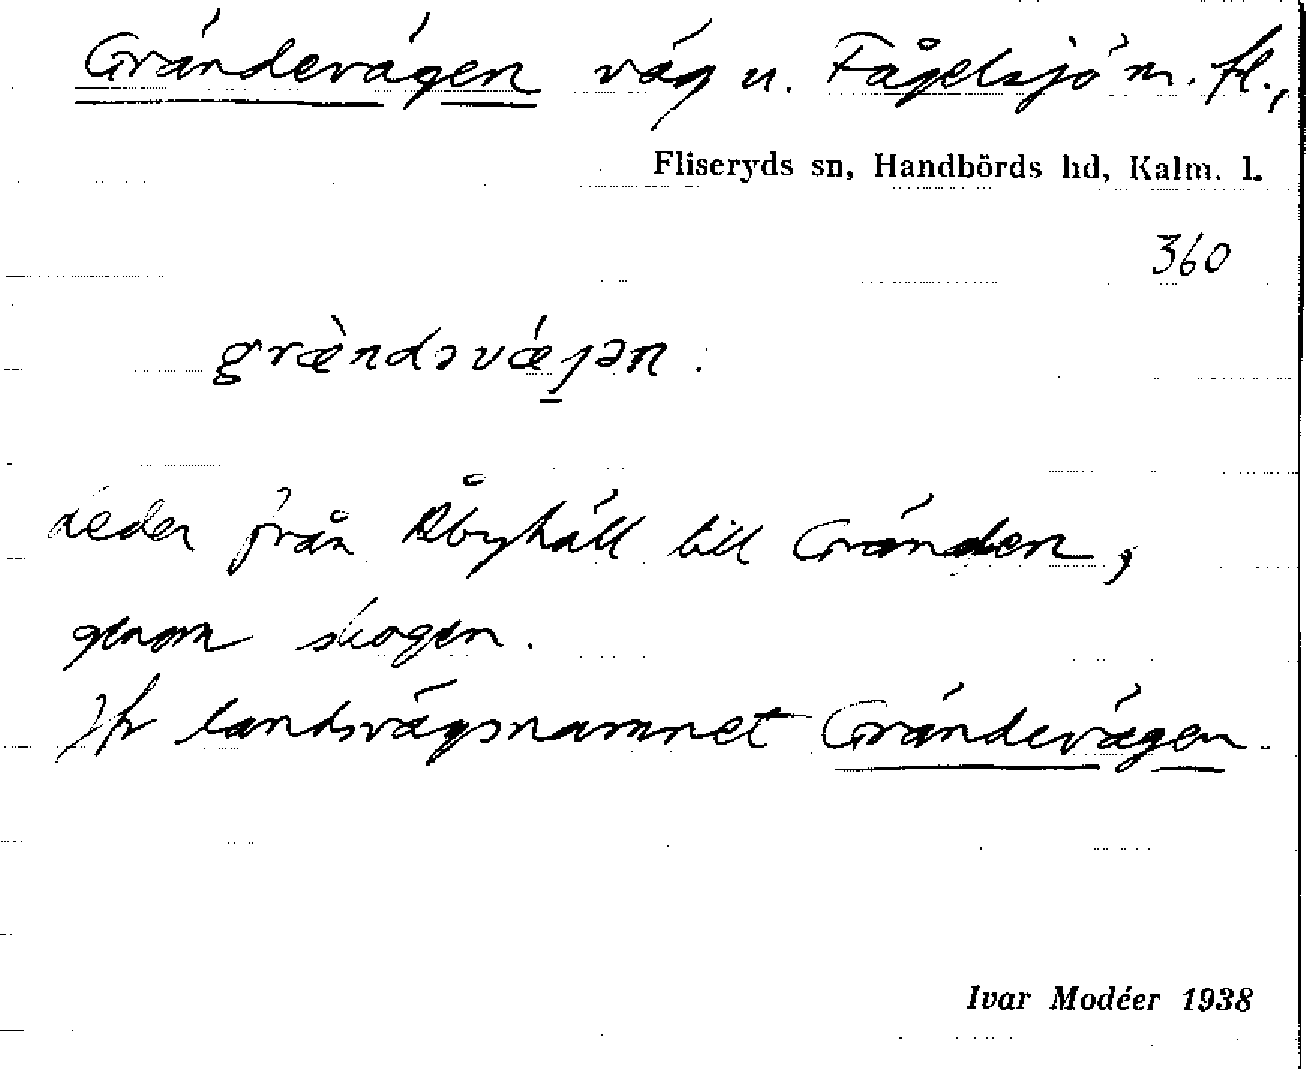 Grändevägen väg u. Fågelsjö m. fl.,
Fliseryds sn, Handbörds hd, Kalm. l.
360
græ̀ndəvǽjən.
Leder från Åbyhäll till Gränden,
genom skogen.
Jfr landsvägsnamnet Grändevägen.
Ivar Modéer 1938